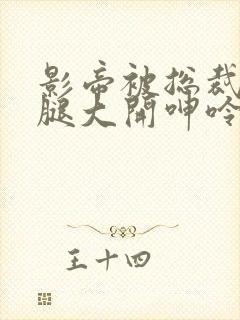 影帝被总裁
腿大开呻吟
王十四